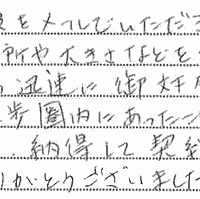 をメールでいただき
所や大きさなどを
迅速に御対
歩圏内にあったこ
納得して契
りがとうございました